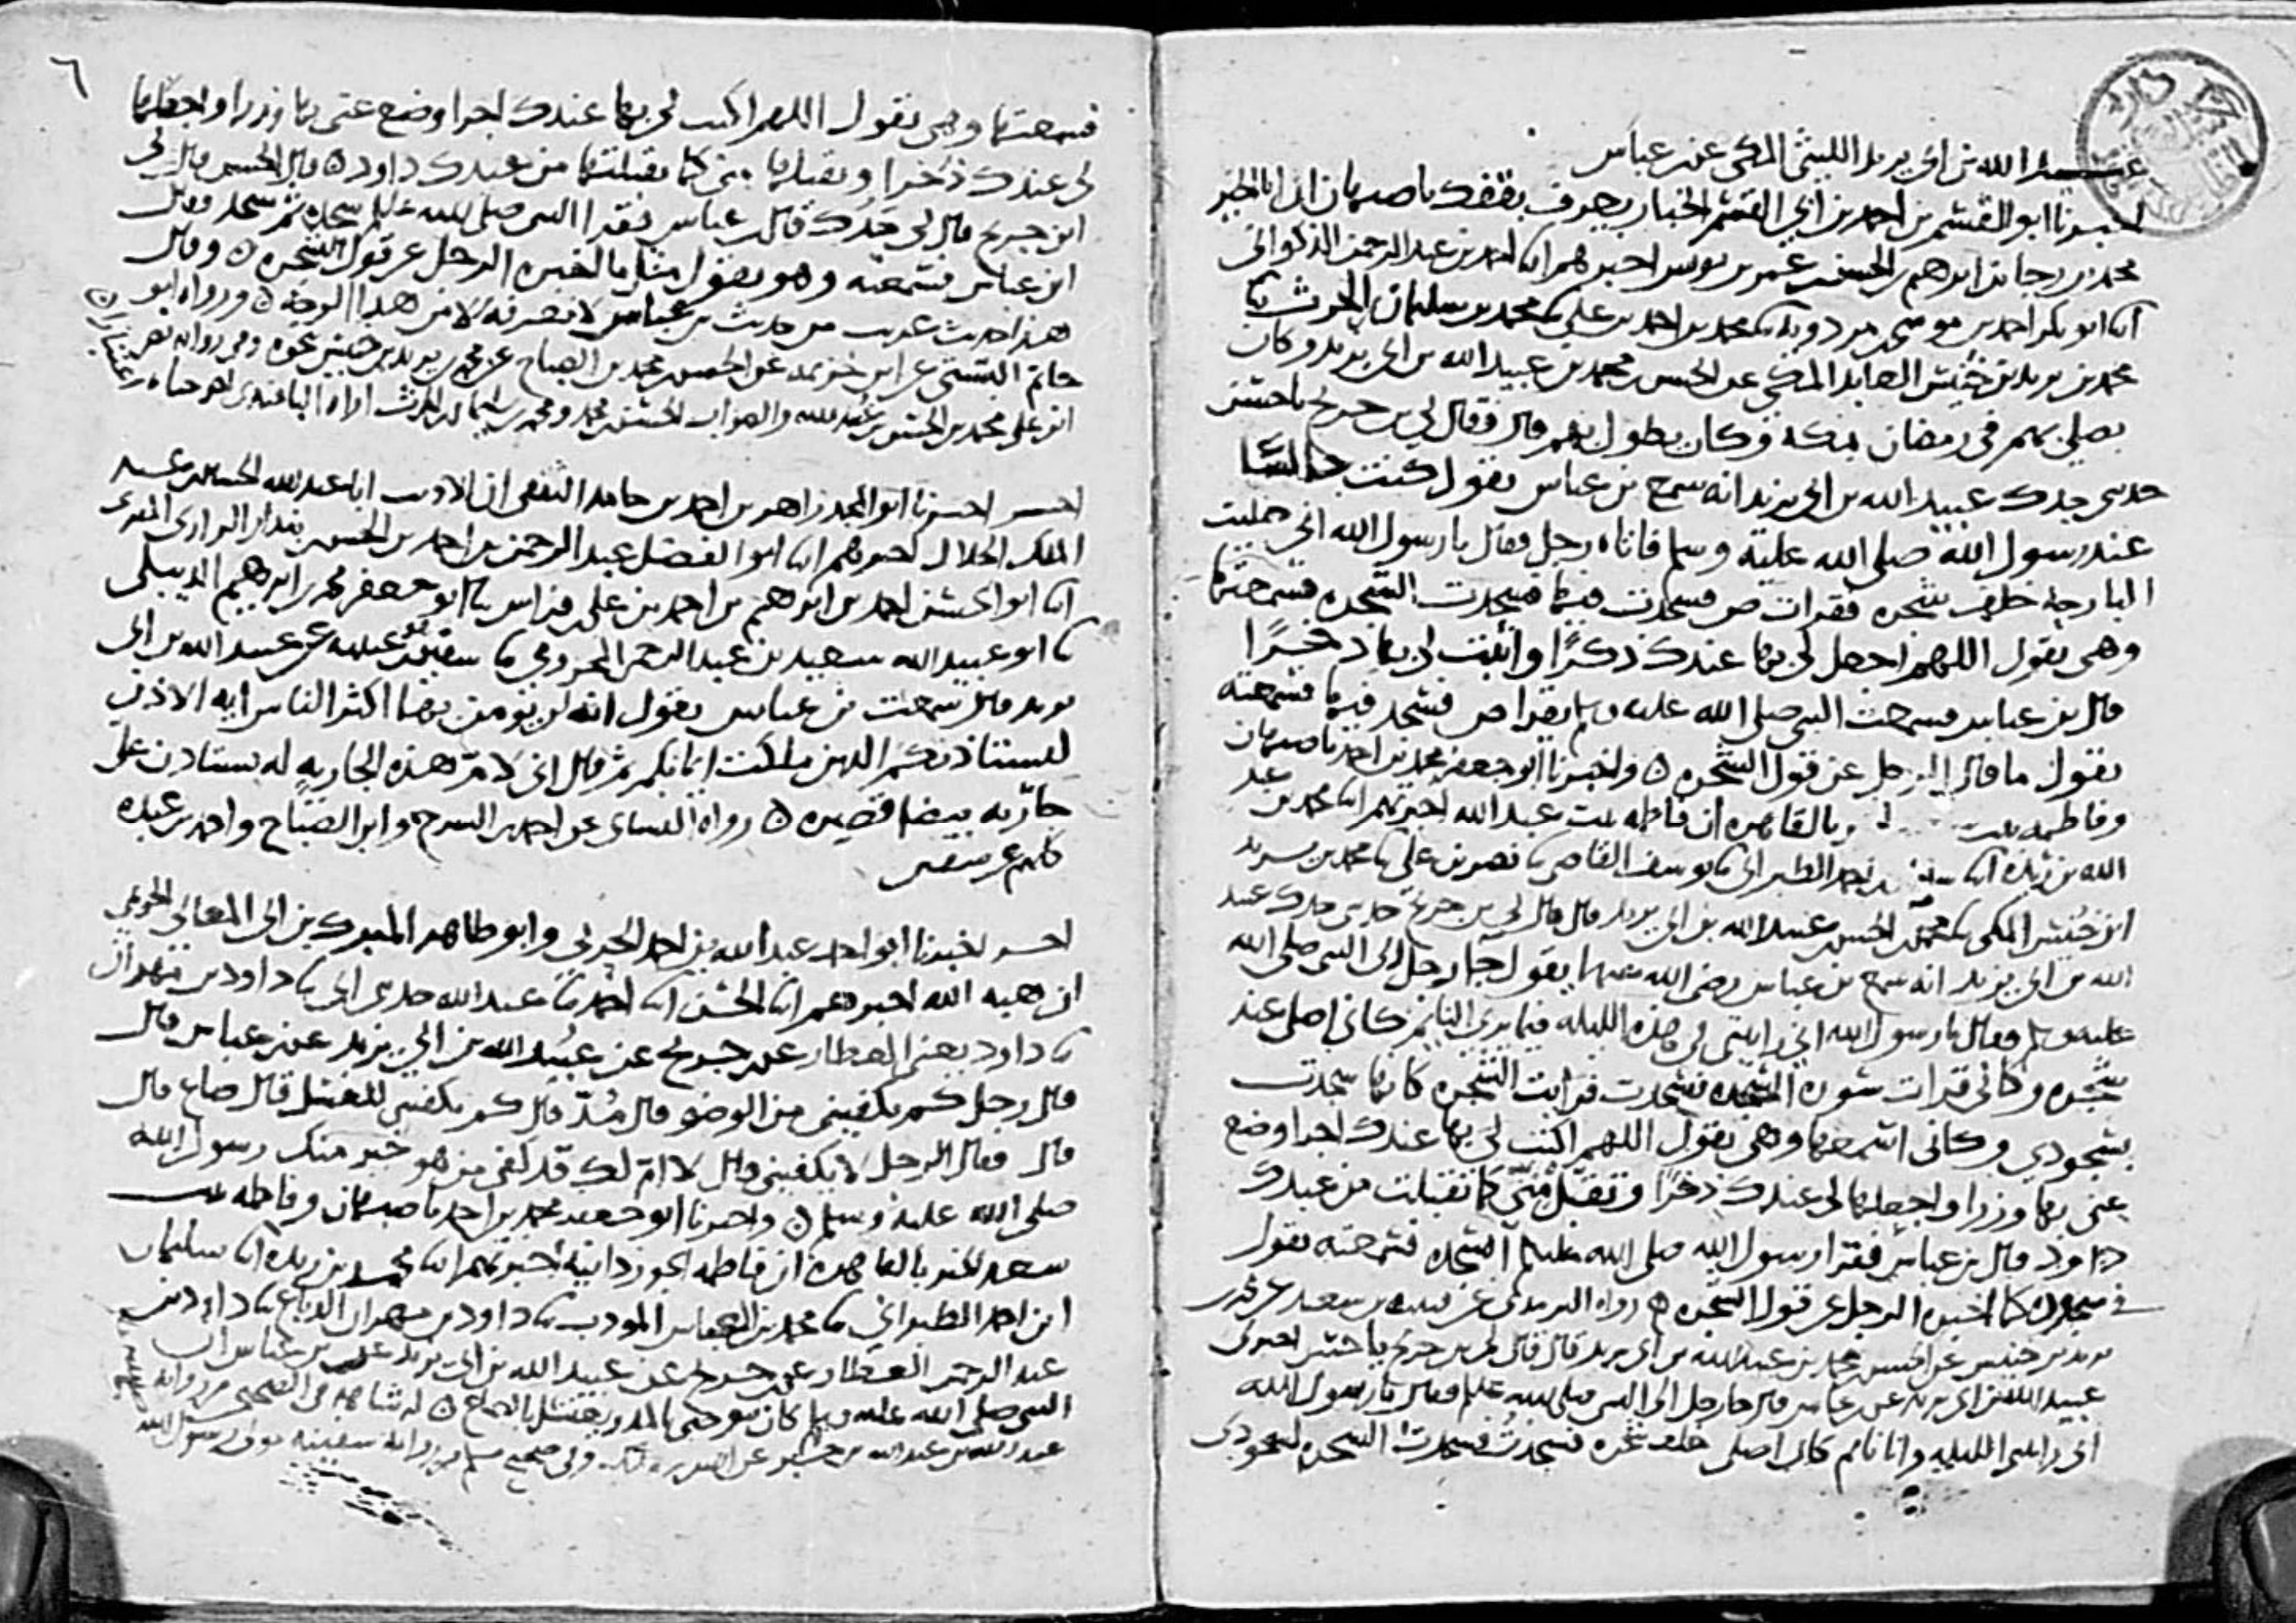 عبيد الله بن ابي يزيد الليثي المكي عن بن عباس
اخبرنا ابو القسم بن احمد بن ابي القسم الخباز يعرف بقفك باصبهان ان ابا الخير
محمد بن رجا بن ابرهيم بن الحسن بن عمر بن يونس اخبرهم ابنا احمد بن عبد الرحمن الذكواني
ابنا ابو بكر احمد بن موسى بن مردويه نا محمد بن احمد بن علي نا محمد بن سليمان بن الحرث نا
محمد بن يزيد بن خنيس العابد المكي عن الحسن بن محمد بن عبيد الله بن ابي يزيد وكان
يصلي بهم في رمضان بمكة وكان يطول بهم قال فقال لي بن جريج يا حسن
حدثني جدك عبيد الله بن ابي يزيد انه سمع بن عباس يقول كنت جالسا
عند رسول الله صلى الله عليه وسلم فاتاه رجل فقال يا رسول الله اني صليت
البارحة خلف شجره فقرات ص فسجدت فيها فسجدت الشجره فسمعتها
وهي تقول اللهم اجعل لي بها عندك ذكرا واثبت لي بها ذخرا
قال بن عباس فسمعت النبي صلى الله عليه وسلم يقرا ص فسجد فيها فسمعته
يقول ما قال الرجل عن قول الشجره ٥ واخبرنا ابو جعفر محمد بن احمد باصبهان
وفاطمه بنت بالقاهره ان فاطمه بنت عبد الله اخبرتهم ابنا محمد بن عبد
الله بن ريذه ابنا سليمن بن احمد الطبراني نا يوسف القاضي نا نصر بن علي نا محمد بن يزيد
ابن خنيس المكي نا الحسن بن محمد بن عبيد الله بن ابي يزيد قال قال لي بن جريج حدثني جدك عبيد
الله بن ابي يزيد انه سمع بن عباس رضي الله عنهما يقول جا رجل الى النبي صلى الله
عليه وسلم فقال يا رسول الله اني رايتني في هذه الليله فيما يرى النايم كاني اصلي عند
شجره وكاني قرات سورة السجده فسجدت فرايت الشجره كانها سجدت
بسجودي وكاني اسمعها وهي تقول اللهم اكتب لي بها عندك اجرا وضع
عني بها وزرا واجعلها لي عندك ذخرا وتقبل مني كما تقبلت من عبدك
داود قال بن عباس فقرا رسول الله صلى الله عليه وسلم السجده فسمعته يقول
في سجوده كما اخبره الرجل عن قول الشجره ٥ رواه الترمذي عن قتيبه بن سعيد عن محمد بن
يزيد بن خنيس عن الحسن بن محمد بن عبيد الله بن ابي يزيد قال قال لي بن جريج يا حسن اخبرني
عبيد الله بن ابي يزيد عن بن عباس قال جا رجل الى النبي صلى الله عليه وسلم فقال يا رسول الله
اني رايتني الليله وانا نايم كاني اصلي خلف شجره فسجدت فسجدت الشجره لسجودي
٦
فسمعتها وهي تقول اللهم اكتب لي بها عندك اجرا وضع عني بها وزرا واجعلها
لي عندك ذخرا وتقبلها مني كما تقبلتها من عبدك داود ٥ قال الحسن قال لي
ابن جريج قال لي جدك قال بن عباس فقرا النبي صلى الله عليه وسلم سجده ثم سجد فقال
ابن عباس فسمعته وهو يقول مثل ما اخبره الرجل عن قول الشجره ٥ وقال
هذا حديث غريب من حديث بن عباس لا نعرفه الا من هذا الوجه ٥ ورواه ابو
حاتم البستي عن ابن خزيمه عن الحسن بن محمد بن الصباح عن محمد بن يزيد بن خنيس بنحوه وفي رواية نصر
ابن علي محمد بن الحسن بن عبيد الله والصواب الحسن بن محمد ومحمد بن سليمان بن الحرث اراه الباغندي
اخبرنا ابو المجد زاهر بن احمد بن حامد الثقفي ان الاديب ابا عبد الله الحسين بن عبد
الملك الخلال اخبرهم ابنا ابو الفضل عبد الرحمن بن احمد بن الحسن بن بندار الرازي المقرى
ابنا ابو الحسن احمد بن ابرهيم بن احمد بن علي بن فراس نا ابو جعفر محمد بن ابرهيم الديبلي
نا ابو عبيد الله سعيد بن عبد الرحمن المخزومي نا سفين بن عيينه عن عبيد الله بن ابي
يزيد قال سمعت بن عباس يقول انه لم يومن بها اكثر الناس ايه الاذن
ليستاذنكم الذين ملكت ايمانكم ثم قال اني لامر هذه الجاريه له تستاذن علي
جاريه بيضا قصيره ٥ رواه النسائي عن احمد بن السرح وابن الصباح واحمد بن عبده
كلهم عن سفين
اخبرنا ابو احمد عبد الله بن احمد الحربي وابو طاهر المبرك بن ابي المعالي الحريمي
ان هبه الله اخبرهم ابنا الحسن ابنا احمد نا عبد الله حدثني ابي نا داود بن مهران
نا داود يعني العطار عن بن جريج عن عبيد الله بن ابي يزيد عن بن عباس قال
قال رجل كم يكفيني من الوضو قال مد قال كم يكفيني للغسل قال صاع قال
قال فقال الرجل لا يكفيني قال لا ام لك قد كفى من هو خير منك رسول الله
صلى الله عليه وسلم ٥ واخبرنا ابو جعفر محمد بن احمد باصبهان وفاطمه بنت
سعد الخير بالقاهره ان فاطمه الجوزدانيه اخبرتهم ابنا محمد بن ريذه ابنا سليمان
ابن احمد الطبراني نا محمد بن العباس المودب نا داود بن مهران الدباغ نا داود بن
عبد الرحمن العطار عن بن جريج عن عبيد الله بن ابي يزيد عن بن عباس ان
النبي صلى الله عليه وسلم كان يتوضى بالمد ويغتسل بالصاع ٥ له شاهد في الصحيحين من رواية
عبد الله بن عبد الله بن جبر عن انس بن مالك وفي صحيح مسلم من رواية سفينه مولى رسول الله